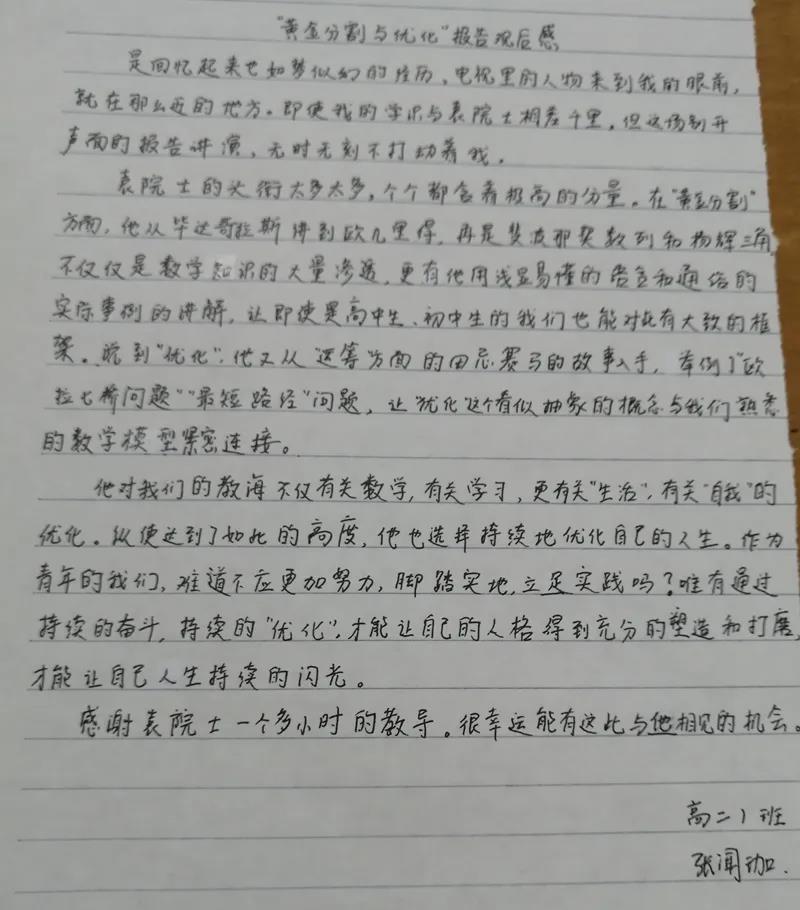 “黄金分割与优化”报告观后感
是回忆起来也如梦似幻的经历，电视里的人物来到我的眼前，
就在那么近的地方。即使我的学识与袁院士相差千里，但这场别开
声面的报告讲演，无时无刻不打动着我。
袁院士的头衔太多太多，个个都含着极高的分量。在“黄金分割”
方面，他从毕达哥拉斯讲到欧几里得，再是斐波那契数列和杨辉三角，
不仅仅是数学知识的大量渗透，更有他用浅显易懂的语言和通俗的
实际事例的讲解，让即使是高中生、初中生的我们也能对此有大致的框
架。说到“优化”，他又从“运筹”方面的田忌赛马的故事入手，举例了“欧
拉七桥问题”“最短路径”问题，让“优化”这个看似抽象的概念与我们熟悉
的数学模型紧密连接。
他对我们的教诲不仅有关数学，有关学习，更有关“生活”，有关“自我”的
优化。纵使达到了如此的高度，他也选择持续地优化自己的人生。作为
青年的我们，难道不应更加努力，脚踏实地，立足实践吗？唯有通过
持续的奋斗，持续的“优化”，才能让自己的人格得到充分的塑造和打磨，
才能让自己人生持续的闪光。
感谢袁院士一个多小时的教导。很幸运能有这此与他相见的机会。
高二1班
张闻珈.